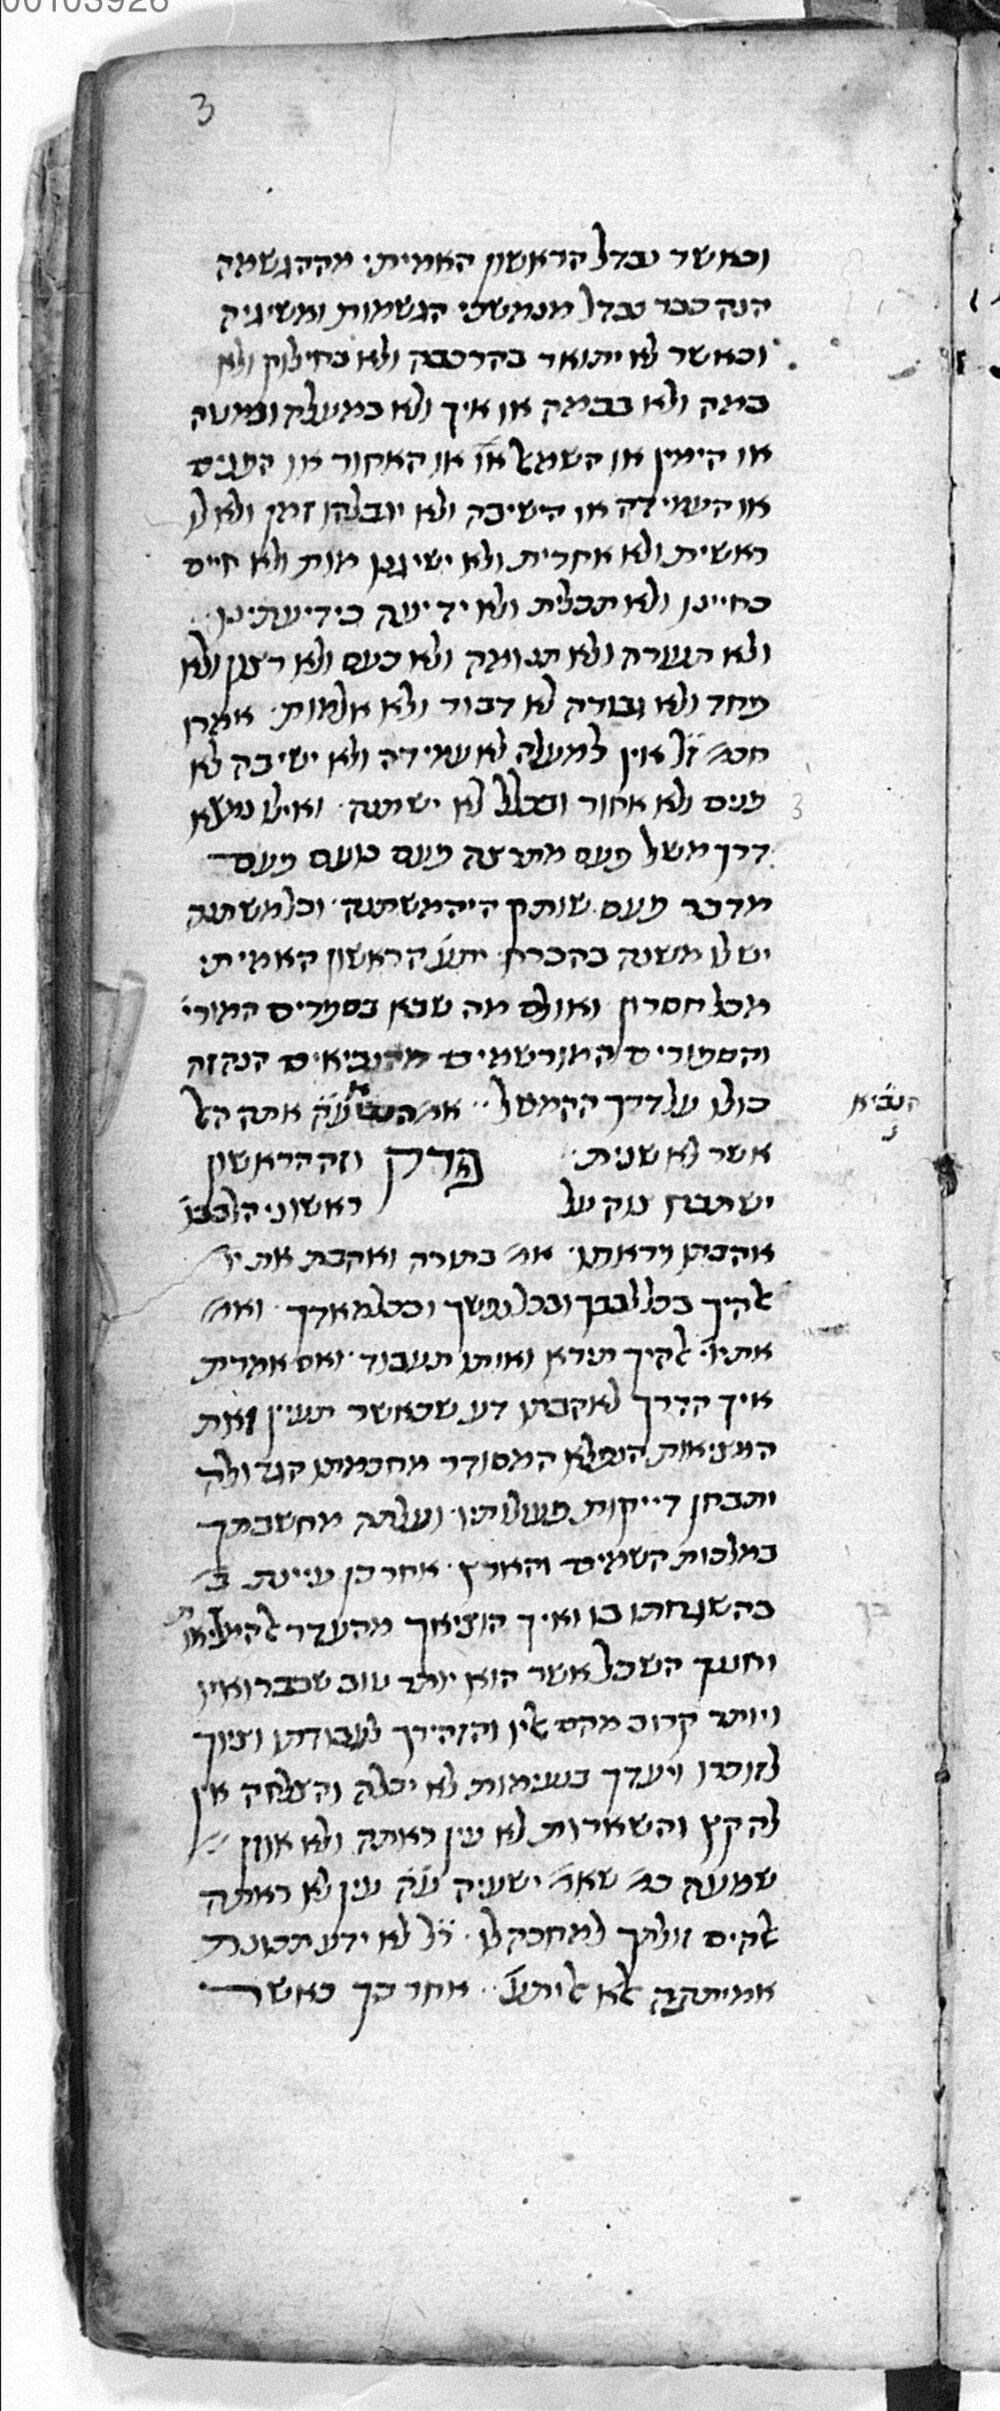 3
וכאשר נבדל הראשון האמיתי מההגשמה
הנה כבר נבדל מנמשכי הגשמות ומשיגיה
וכאשר לא יתואר בהרכבה ולא בחילוק ולא
כמה ולא בבמה או איך ולא במעלה ובמטה
או הימין או השמאל או האחור או הפנים
או העמידה או הישיבה ולא יובלהו זמן ולא לו
ראשית ולא אחרית ולא ישיגנו מות ולא חיים
כחיינו ולא תכלית ולא ידיעה כידיעתינו
ולא הנערה ולא תנומה ולא כעס ולא רצון ולא
פחד ולא גבורה לא דבור ולא אלמות אמרו
חכמ׳ ז״ל אין למעלה לא עמידה ולא ישיבה לא
פנים ולא אחור ובכלל לא ישתנה ואילו נמצא
3
דרך משל פעם מתרצה פעם כועס פעם
מדבר פעם שותק היה משתנה וכל משתנה
יש לו משנה בהכרח יתע׳ הראשון האמיתי
מכל חסרון ואולם מה שבא בספרים המורי׳
והספורים המורשמים מהנביאים הנה זה
כולו על דרך ההמשל אמ׳ הנביא ע״ה אתה הל
הנביא
אשר לא שנית פרק וזה הראשון
ישתבח נוק על ראשוני הלבבו׳
אהבתו ויראתו אמ׳ בתורה ואהבת את יי׳
אלהיך בכל לבבך ובכל נפשך ובכל מאדך ואמ׳
את יי׳ אלהיך תירא ואותו תעבוד ואם אמרת
איך הדרך לאהבתו דע שכאשר תעיין זאת
המציאות הנפלא המסודר מחכמתו הגדולה
ותבחן דייקות פעולותיו ועלתה מחשבתך
במלכות השמים והארץ אחר כן עיינת ב׳
בהשגחתו בו ואיך הוציאך מההעדר אל המציאות
בך
וחננך השכל אשר הוא יותר טוב שבברואיו
ויותר קרוב מהם אליו והזהירך לעבודתו וציוך
לזוכרו ויעדך בנעימות לא יכלה והצלחה אין
לה קץ והשארות לא עין ראתה ולא אוזן
שמעה כמ׳ שאמ׳ ישעיה ע״ה עין לא ראתה
אלהים זולתך למחכה לו ר״ל לא ידע תכונת
אמיתתה אלא אל יתע׳ אחר כך כאשר